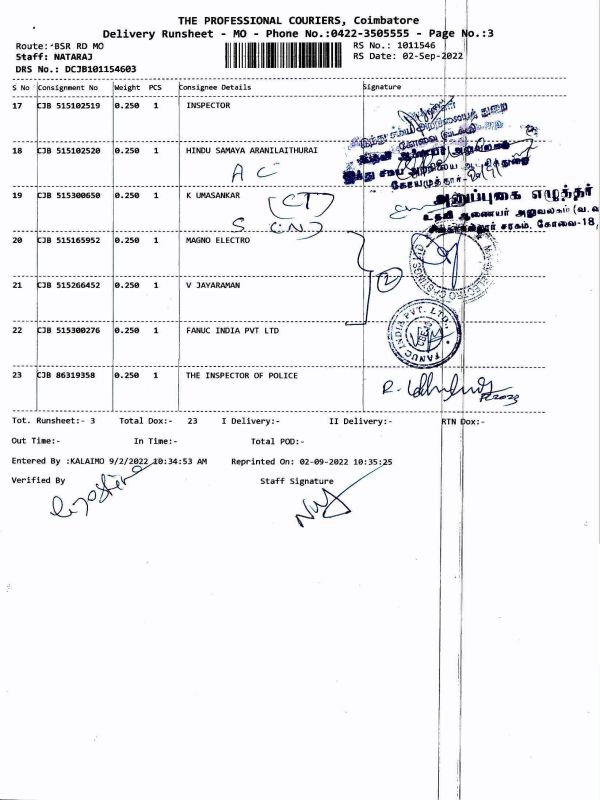 THE PROFESSIONAL COURIERS, Coimbatore
Delivery Runsheet - MO - Phone No.:0422-3505555 - Page No.:3
Route: BSR RD MO
RS No.: 1011546
Staff: NATARAJ
RS Date: 02-Sep-2022
DRS No.: DCJB101154603
S No Consignment No Weight PCS Consignee Details Signature
17 CJB 515102519 0.250 1 INSPECTOR
18 CJB 515102520 0.250 1 HINDU SAMAYA ARANILAITHURAI
A C
19 CJB 515300650 0.250 1 K UMASANKAR
(CT)
அனுப்புகை எழுத்தர்
உதவி ஆணையர் அலுவலகம்
சரகம், கோவை-18,
S (N)
20 CJB 515165952 0.250 1 MAGNO ELECTRO
2
21 CJB 515266452 0.250 1 V JAYARAMAN
22 CJB 515300276 0.250 1 FANUC INDIA PVT LTD
FANUC INDIA PVT. LTD.
23 CJB 86319358 0.250 1 THE INSPECTOR OF POLICE
R.
Tot. Runsheet:- 3 Total Dox:- 23 I Delivery:- II Delivery:- RTN Dox:-
Out Time:- In Time:- Total POD:-
Entered By :KALAIMO 9/2/2022 10:34:53 AM Reprinted On: 02-09-2022 10:35:25
Verified By Staff Signature